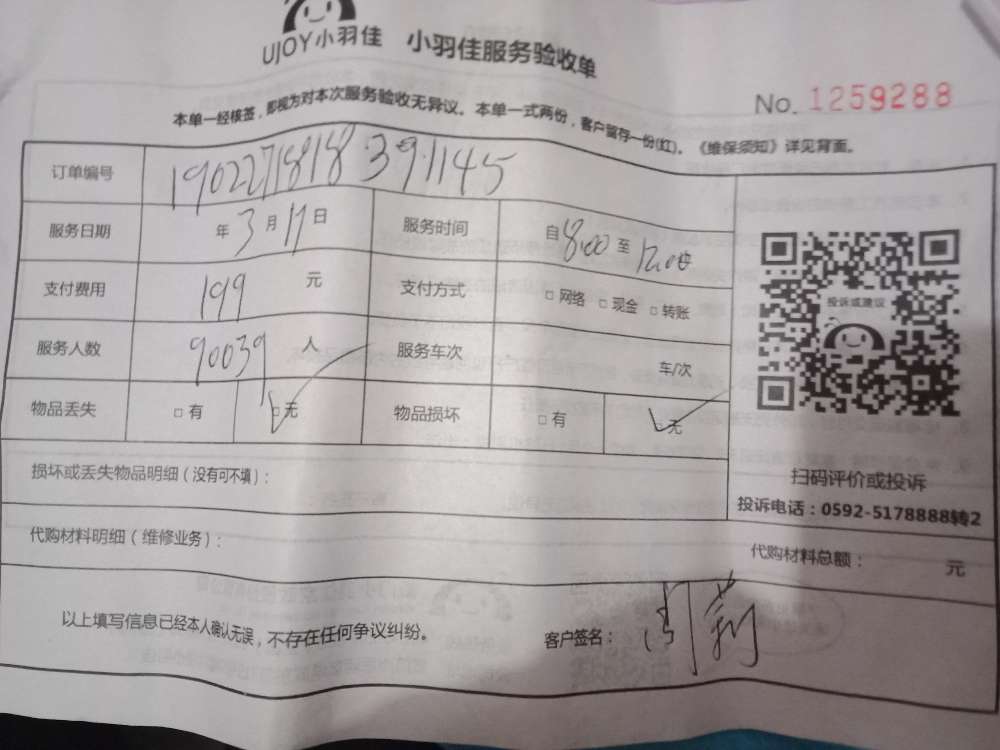 UJOY小羽佳 小羽佳服务验收单
No. 1259288
本单一经核签，即视为对本次服务验收无异议。本单一式两份，客户留存一份(红)。《维保须知》详见背面。
订单编号 190227181839.1145
服务日期 年 3 月 17 日 服务时间 自 8:00 至 12:00
支付费用 199 元 支付方式 □ 网络 □ 现金 □ 转账
服务人数 90039 人 服务车次 车/次
物品丢失 □ 有 □ 无 物品损坏 □ 有 □ 无
投诉或建议
损坏或丢失物品明细（没有可不填）：
扫码评价或投诉
投诉电话：0592-5178888转2
代购材料明细（维修业务）：
代购材料总额： 元
以上填写信息已经本人确认无误，不存在任何争议纠纷。 客户签名：